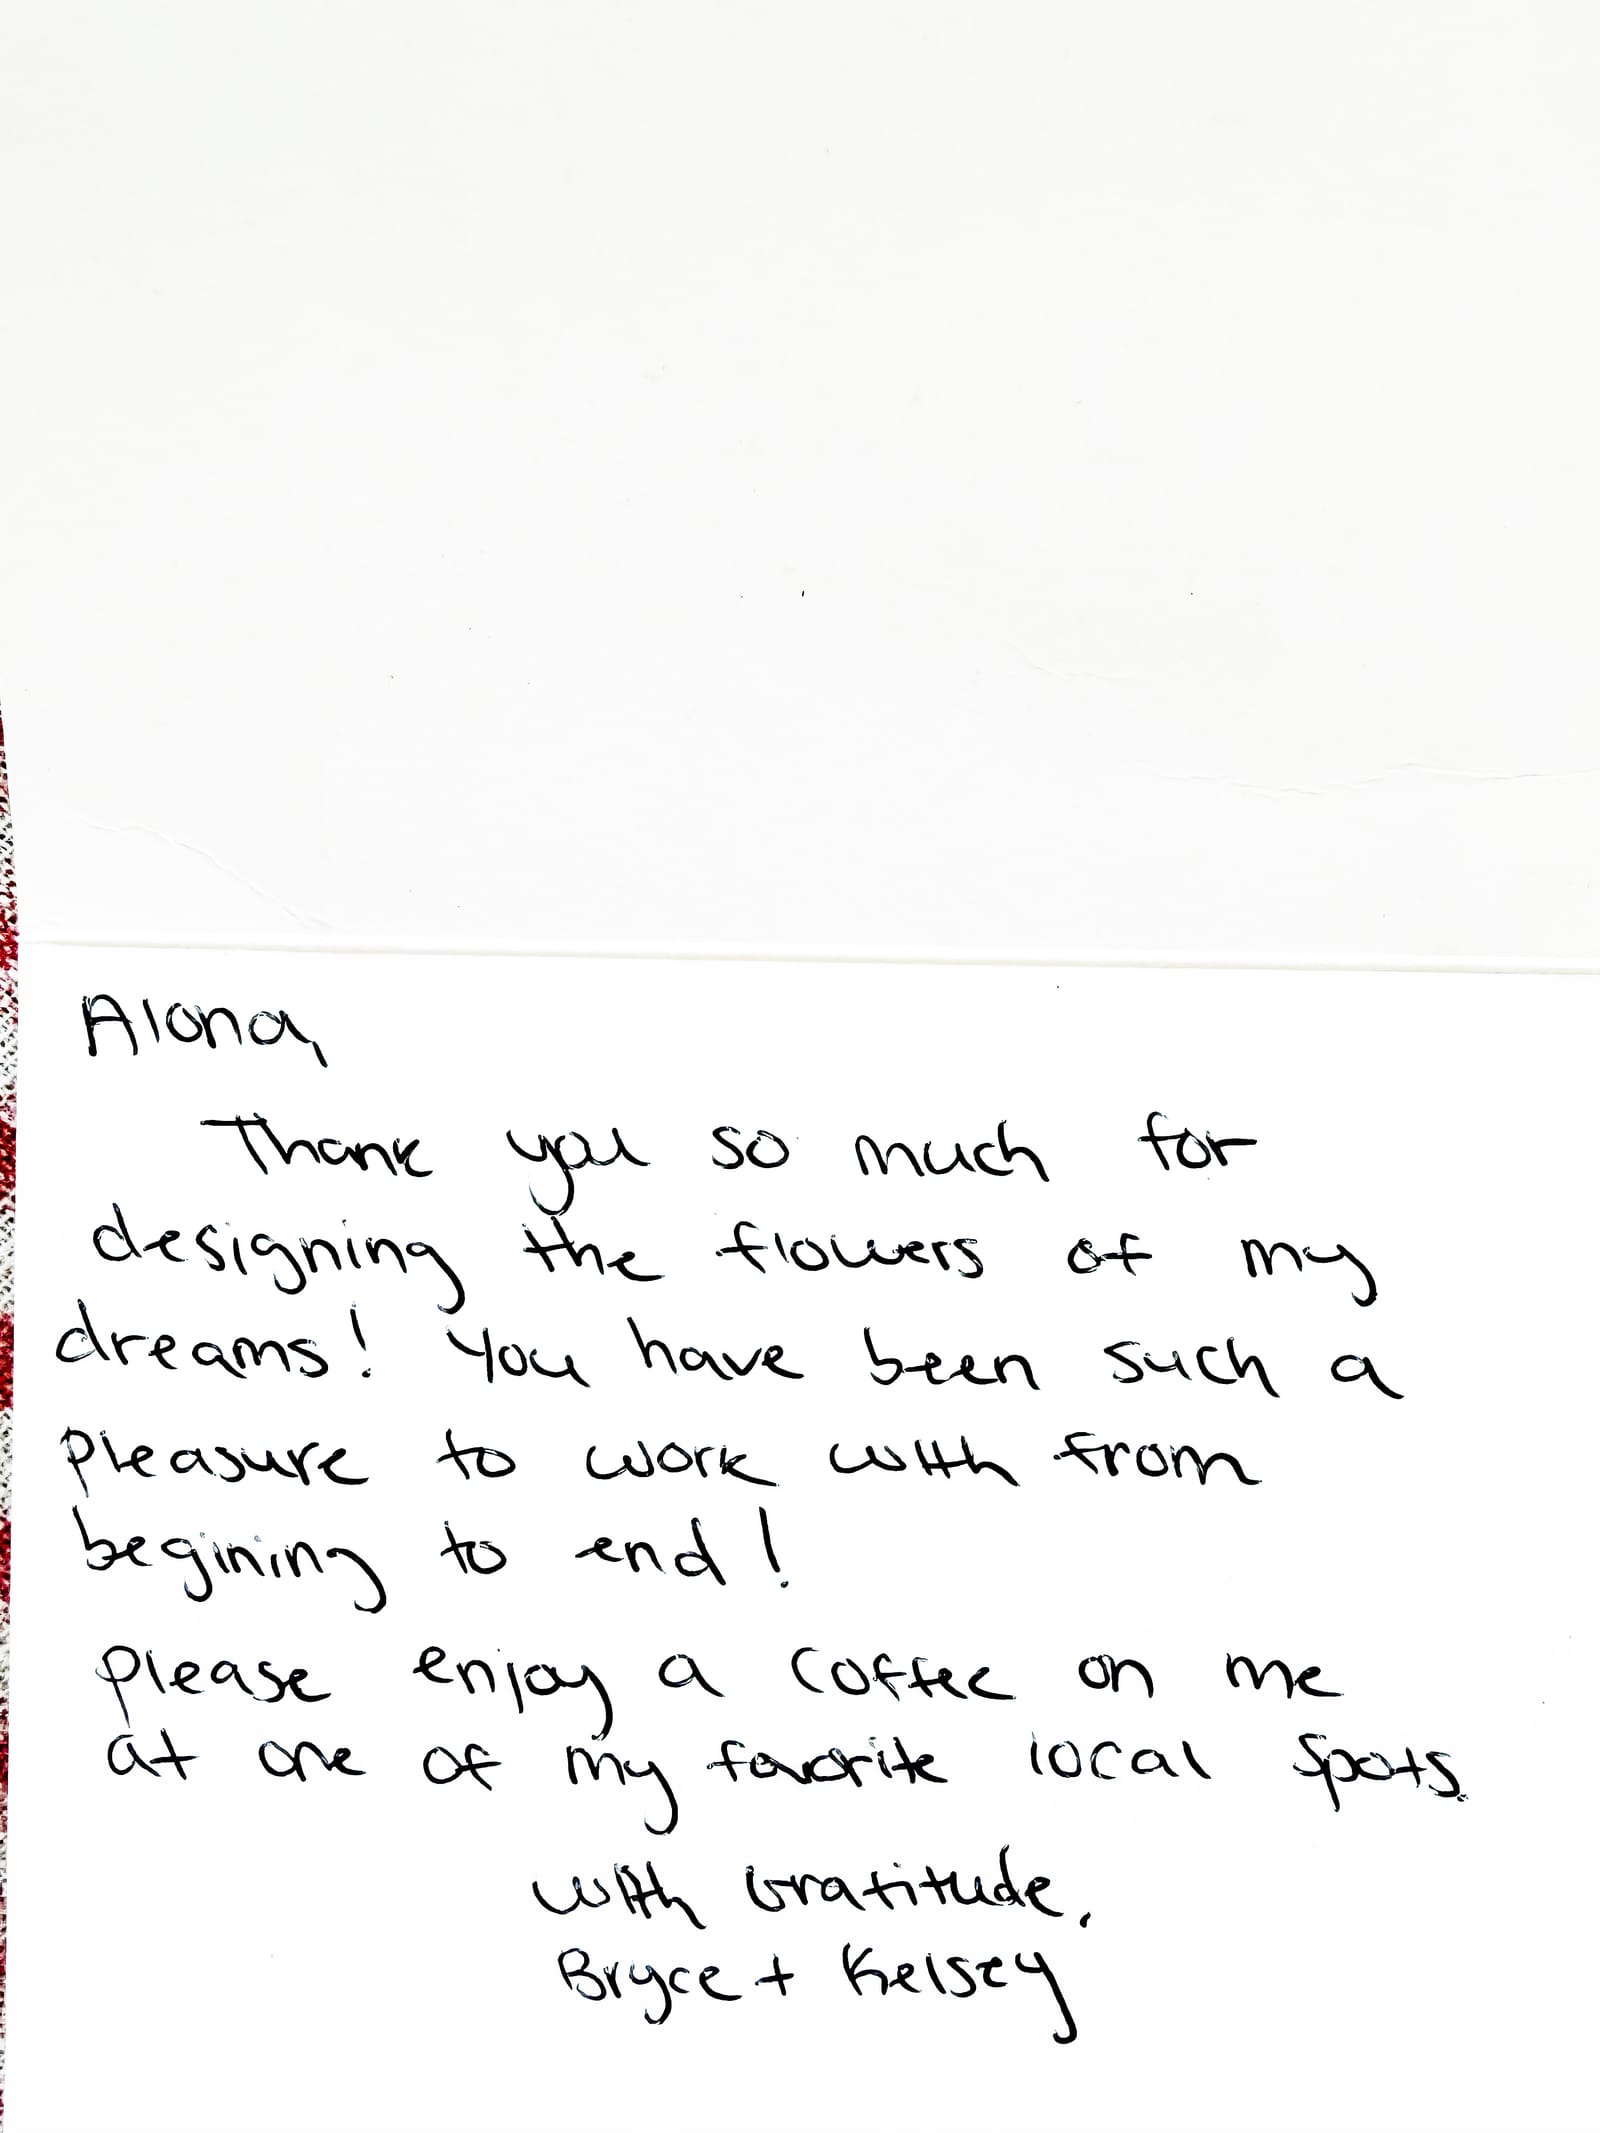 Alona,
Thank you so much for
designing the flowers of my
dreams! You have been such a
pleasure to work with from
begining to end!
please enjoy a coffee on me
at one of my favorite local spots.
with Gratitude,
Bryce + Kelsey